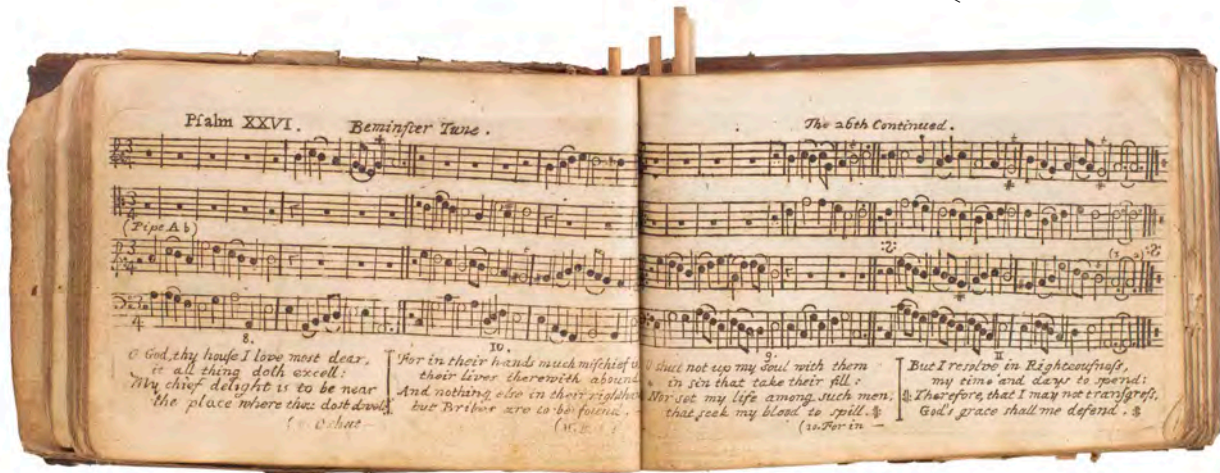 Psalm XXVI. Beminster Tune.
(Pipe A b)
8.
O God, thy house I love most dear,
it all thing doth excell:
My chief delight is to be near
the place where thou dost dwell
(9. O shut —
10.
For in their hands much mischief is
their lives therewith abound
And nothing else in their
but Bribes are to be found.
The 26th Continued.
:S: :S:
9.
O shut not up my soul with them
in sin that take their fill:
Nor set my life among such men,
that seek my blood to spill.
(10. For in —
11
But I resolve in Righteousness,
my time and days to spend:
Therefore, that I may not transgress,
God's grace shall me defend.